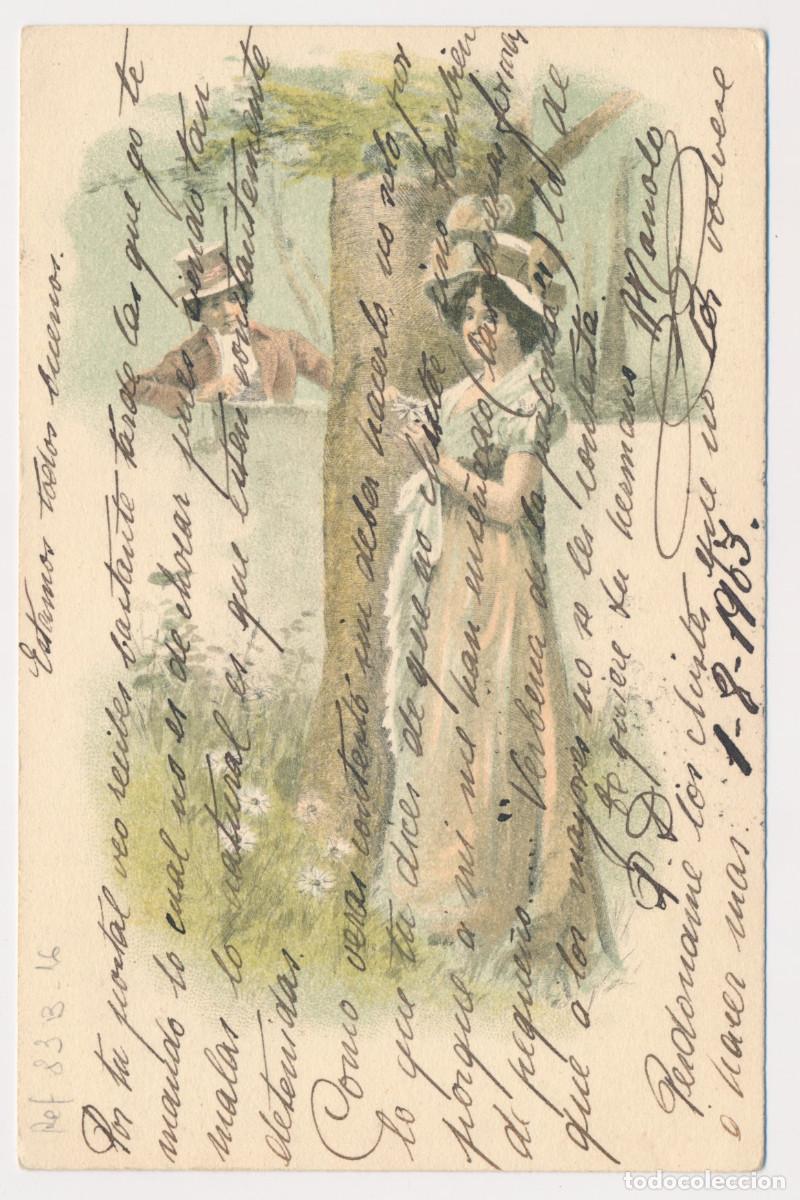 Estamos todos buenos.
Por tu postal veo recibes bastante tarde las que yo te
mando lo cual no es de chocar pues siendo tan
malas lo natural es que esten constantemente
detenidas.
Como veras contesto sin deber hacerlo, no solo por
lo que tu dices de que no chiste sino tambien
porque a mi me han enseñado (las buenas formas)
de pequeño.... "Verbena de la paloma") la de
que a los mayores no se les contesta.
Te quiere tu hermano Manolo
P.D.
Perdoname los chistes que no los volvere
a hacer mas. 1-8-1903.
Ref 83B-16
todocoleccion